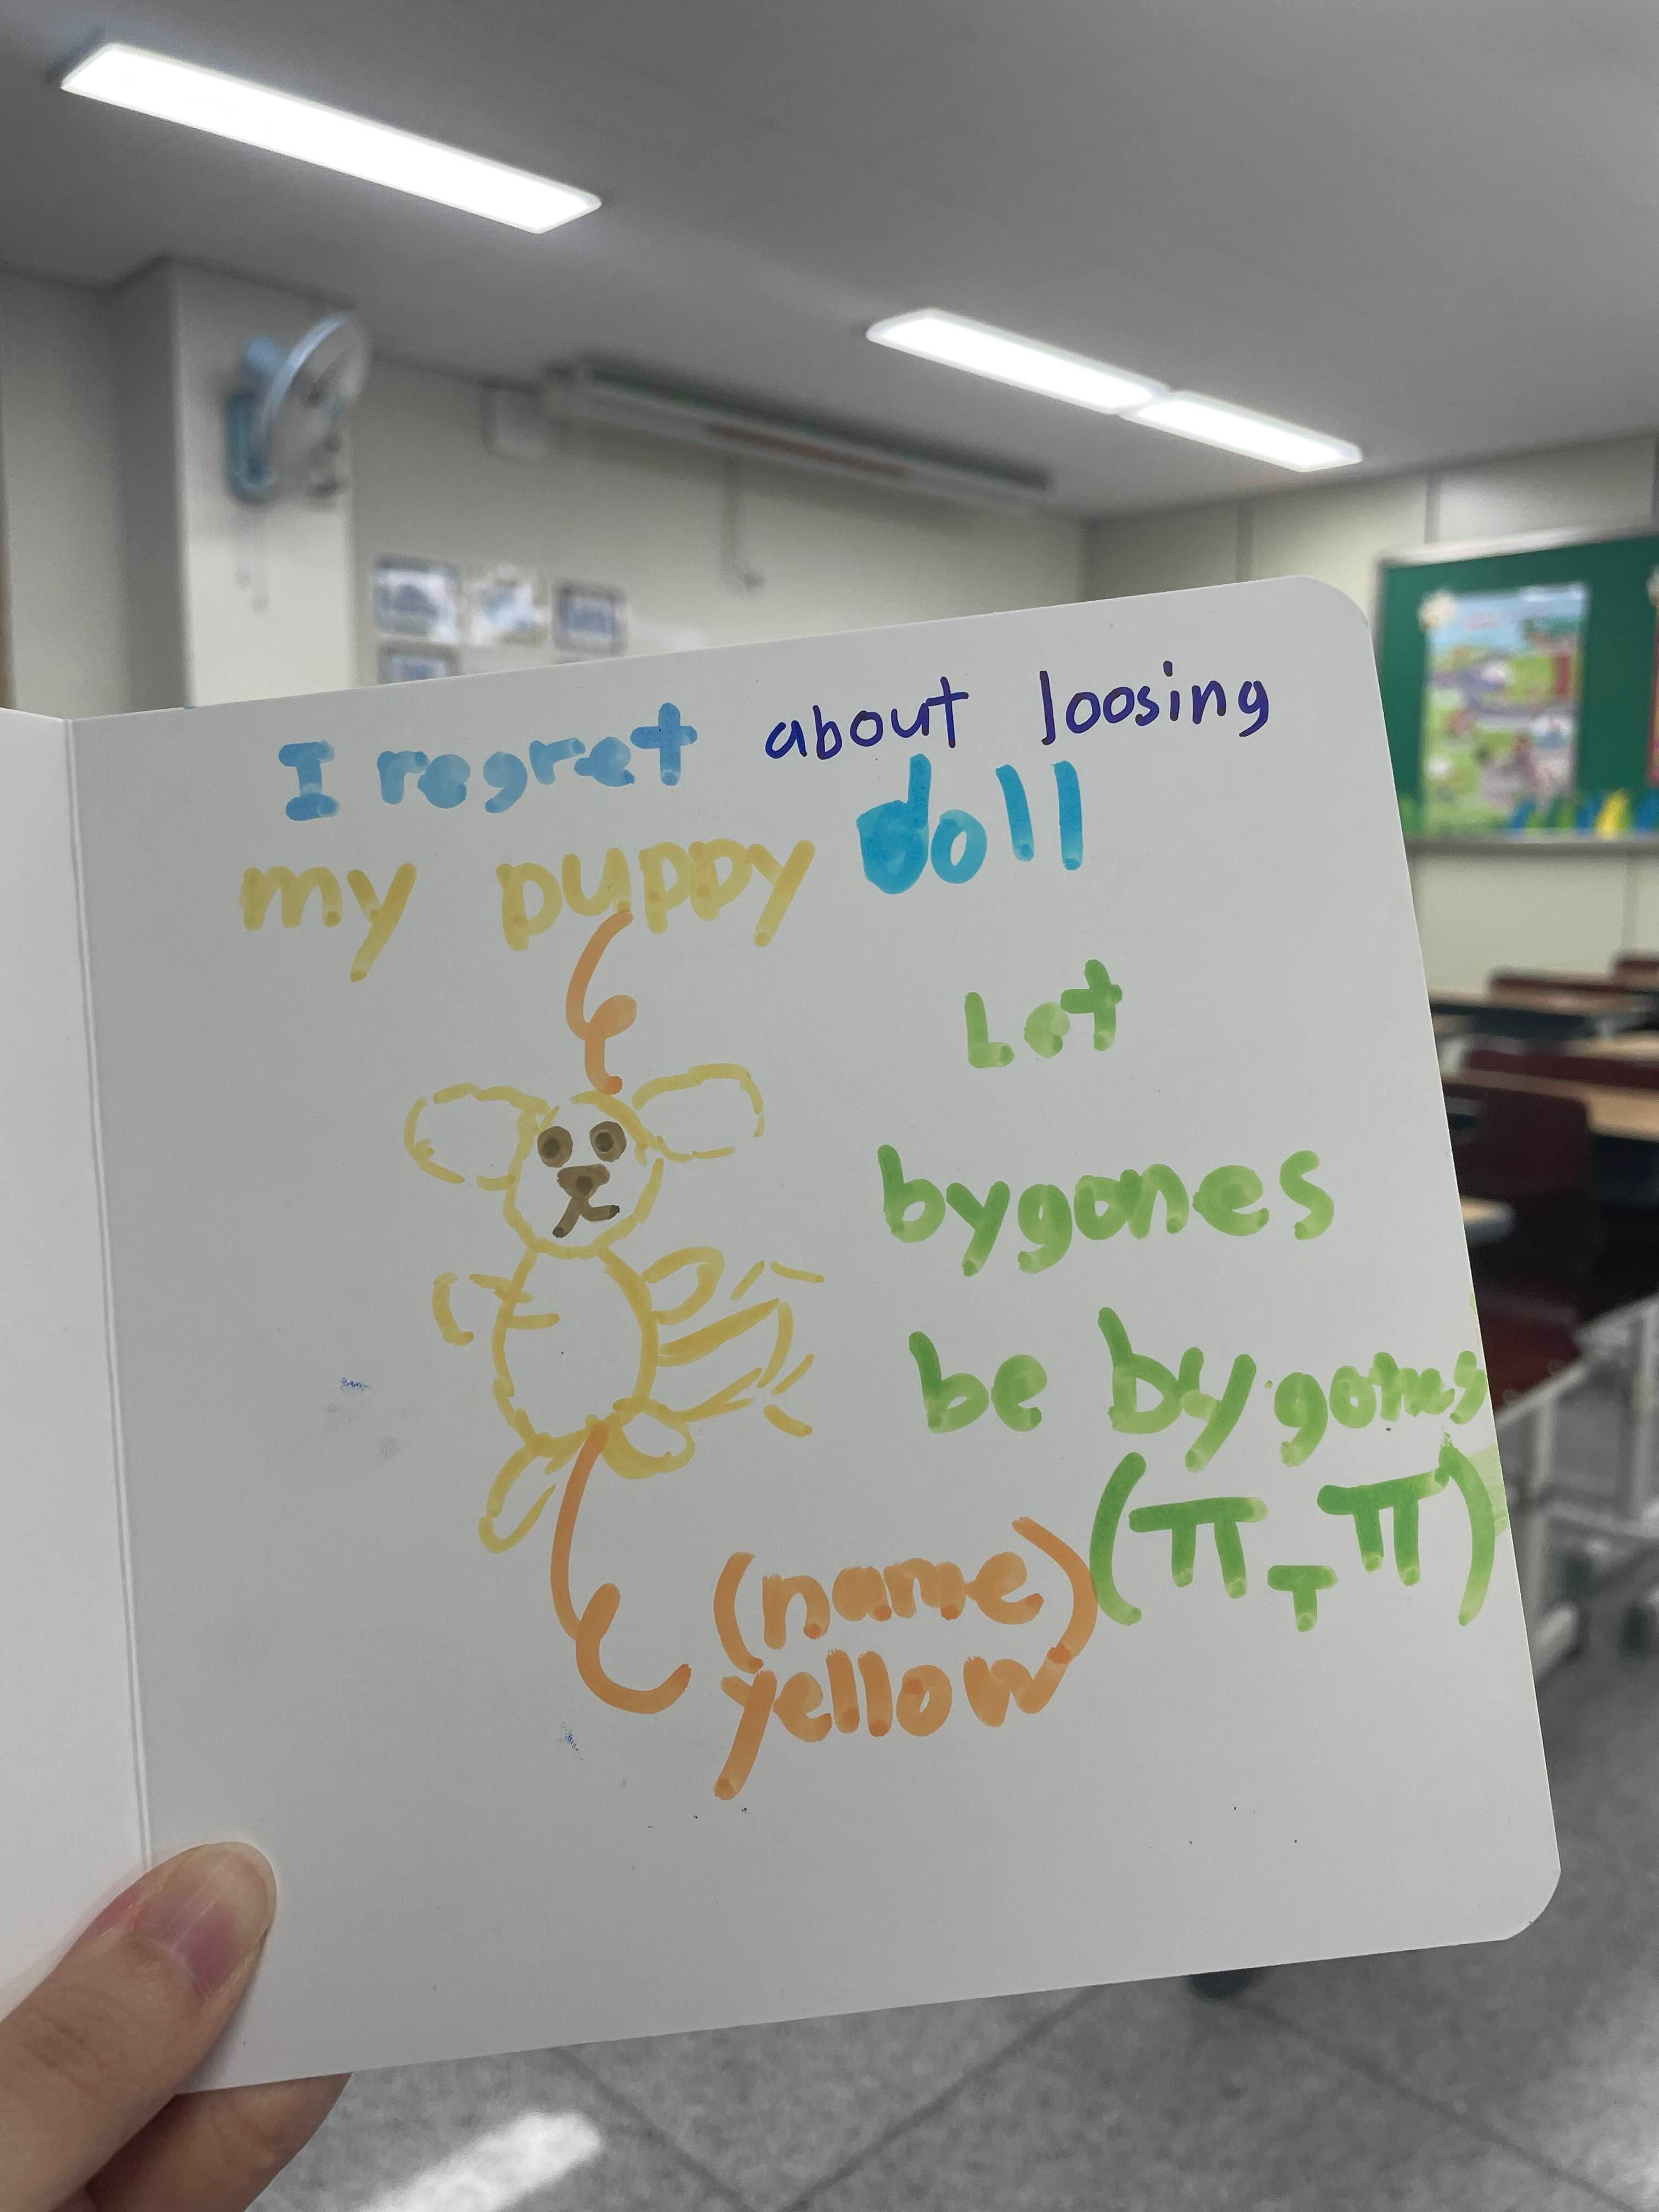 I regret about loosing
my puppy doll
Let
bygones
be bygones
(π_T_π)
(name)
yellow